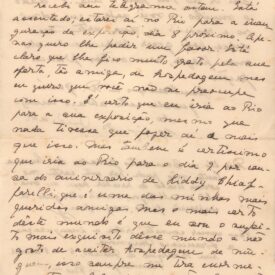 recebi seu telegrama ontem. Está
assentado, estarei aí no Rio para a inau
guração da exposição, dia 8 próximo. Ape
nas quero lhe pedir um favor. Está
claro que lhe fico muito grato pela sua
oferta, tão amiga, de hospedagem mas
eu quero que você não se preocupe
com isso. É certo que eu iria ao Rio
para a sua exposição, mesmo que
nada tivesse que fazer aí a mais
que isso. Mas também é certíssimo
que iria ao Rio para o dia 9 por cau
sa do aniversário de Liddy Chiaf
farelli que é uma das minhas mais
queridas amigas mas o mais certo
deste mundo é que eu sou o sujei
to mais esquisito desse mundo e não
gosto de aceitar hospedagem de nin
guem, isso sempre me tira